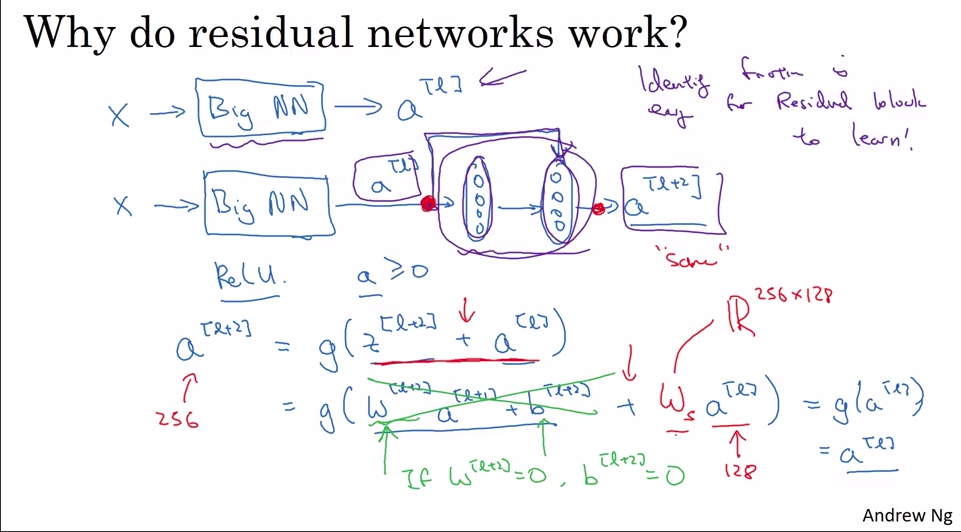 Why do residual networks work?
X → Big NN → a^[l]
Identity function is
easy for Residual block
to learn!
X → Big NN → a^[l] → a^[l+2]
"same"
ReLU. a ≥ 0
ℝ^256×128
a^[l+2] = g(z^[l+2] + a^[l])
256
= g(W^[l+2] a^[l+1] + b^[l+2] + W_s a^[l]) = g(a^[l])
= a^[l]
If W^[l+2]=0, b^[l+2]=0
128
Andrew Ng